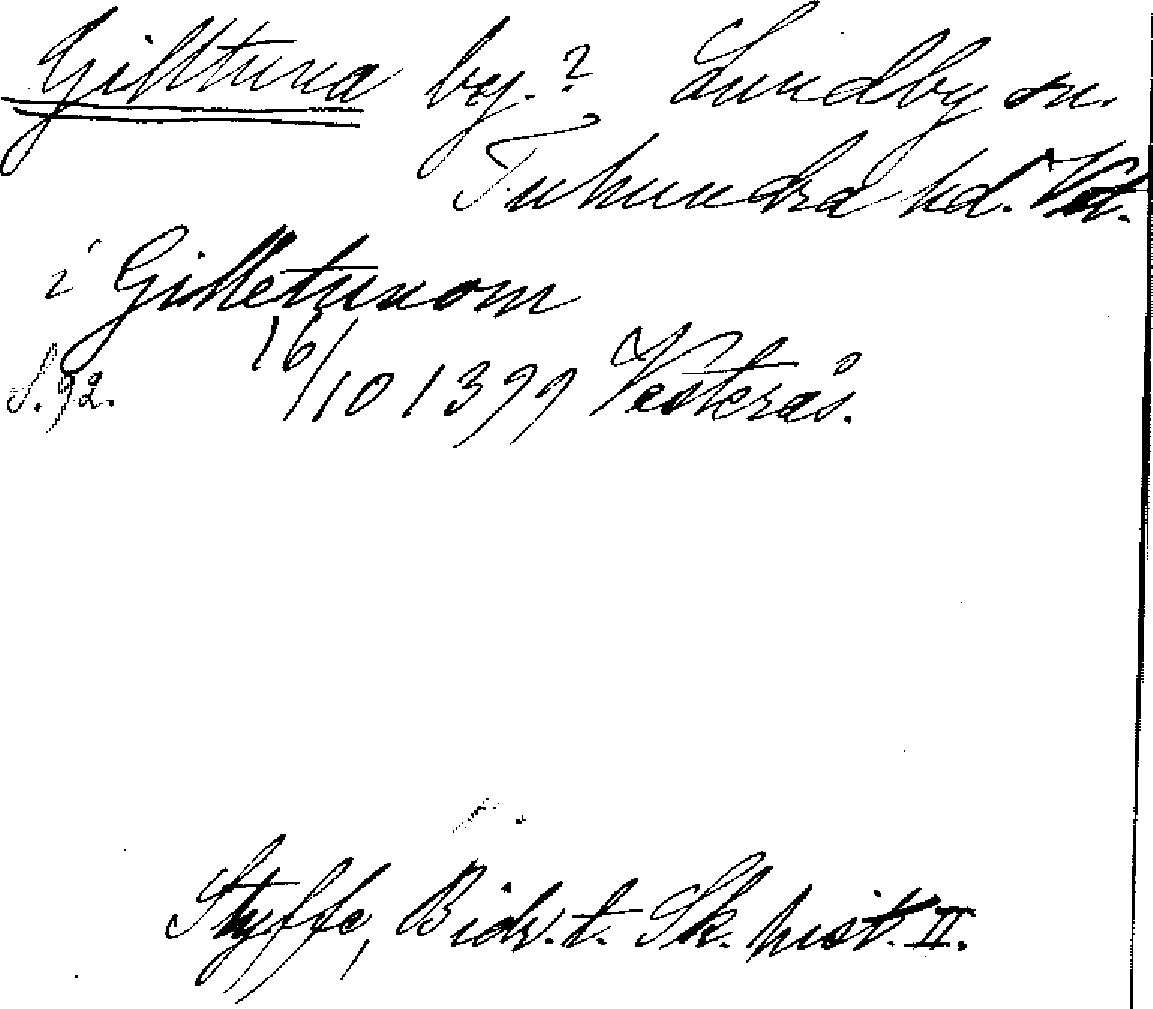 Gilltuna by.? Lundby sn.
Tuhundra hd. Vst.
i Gilletunom
S. 92. 16/10 1399 Vesterås.
Styffe, Bidr. t. Sk. hist. II.